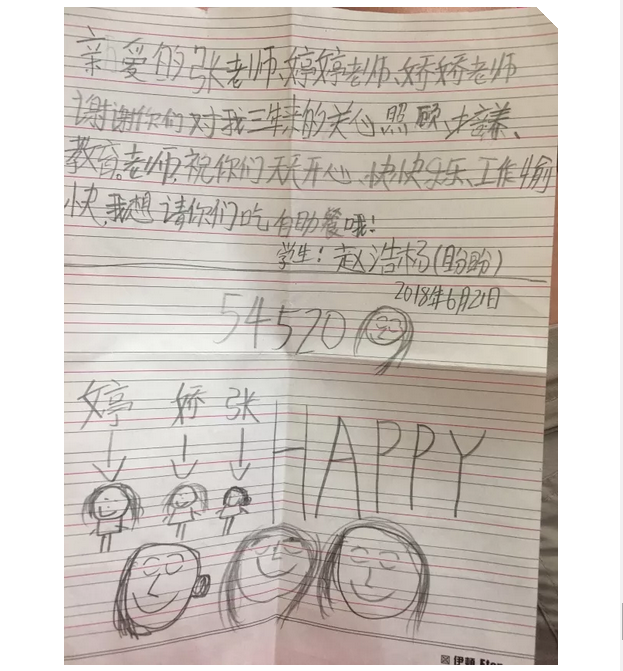 亲爱的张老师、婷婷老师、娇娇老师
谢谢你们对我三年来的关心、照顾、培养、
教育。老师,祝你们天天开心、快快乐乐、工作愉
快,我想请你们吃自助餐哦!
学生:赵浩杨(盼盼)
2018年6月21日
54520
婷 娇 张
HAPPY
伊頓 Eton